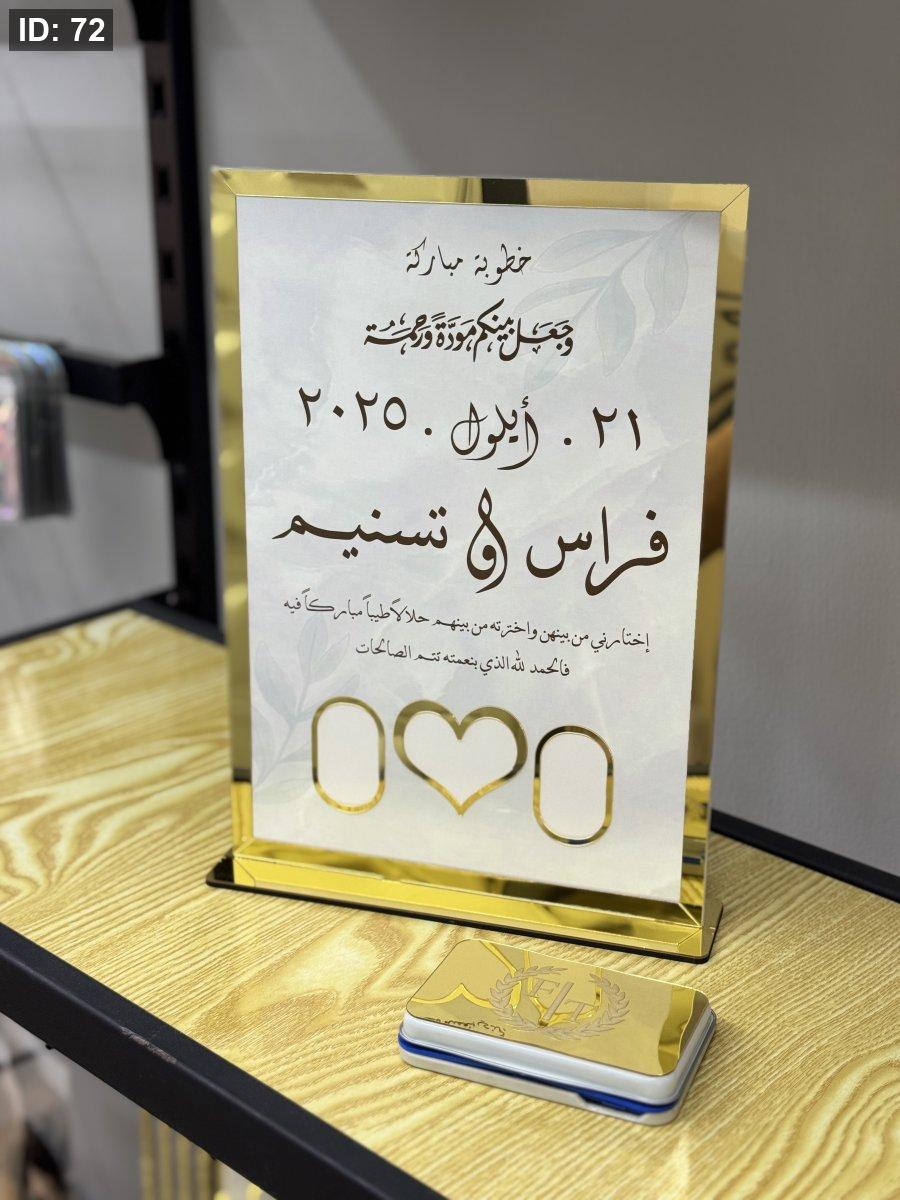 ID: 72
خطوبة مباركة
وَجَعَلَ بينكم مَوَدَّةً وَرَحْمَةً
٢١ . أيلول . ٢٠٢٥
فراس و تسنيم
إختارني من بينهن واخترته من بينهم حلالاً طيباً مباركاً فيه
فالحمد لله الذي بنعمته تتم الصالحات
F/T